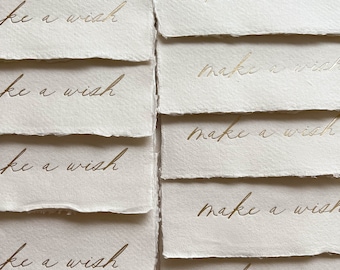 ke a wish
ke a wish
ke a wish
ke a wish
make a wish
make a wish
make a wish